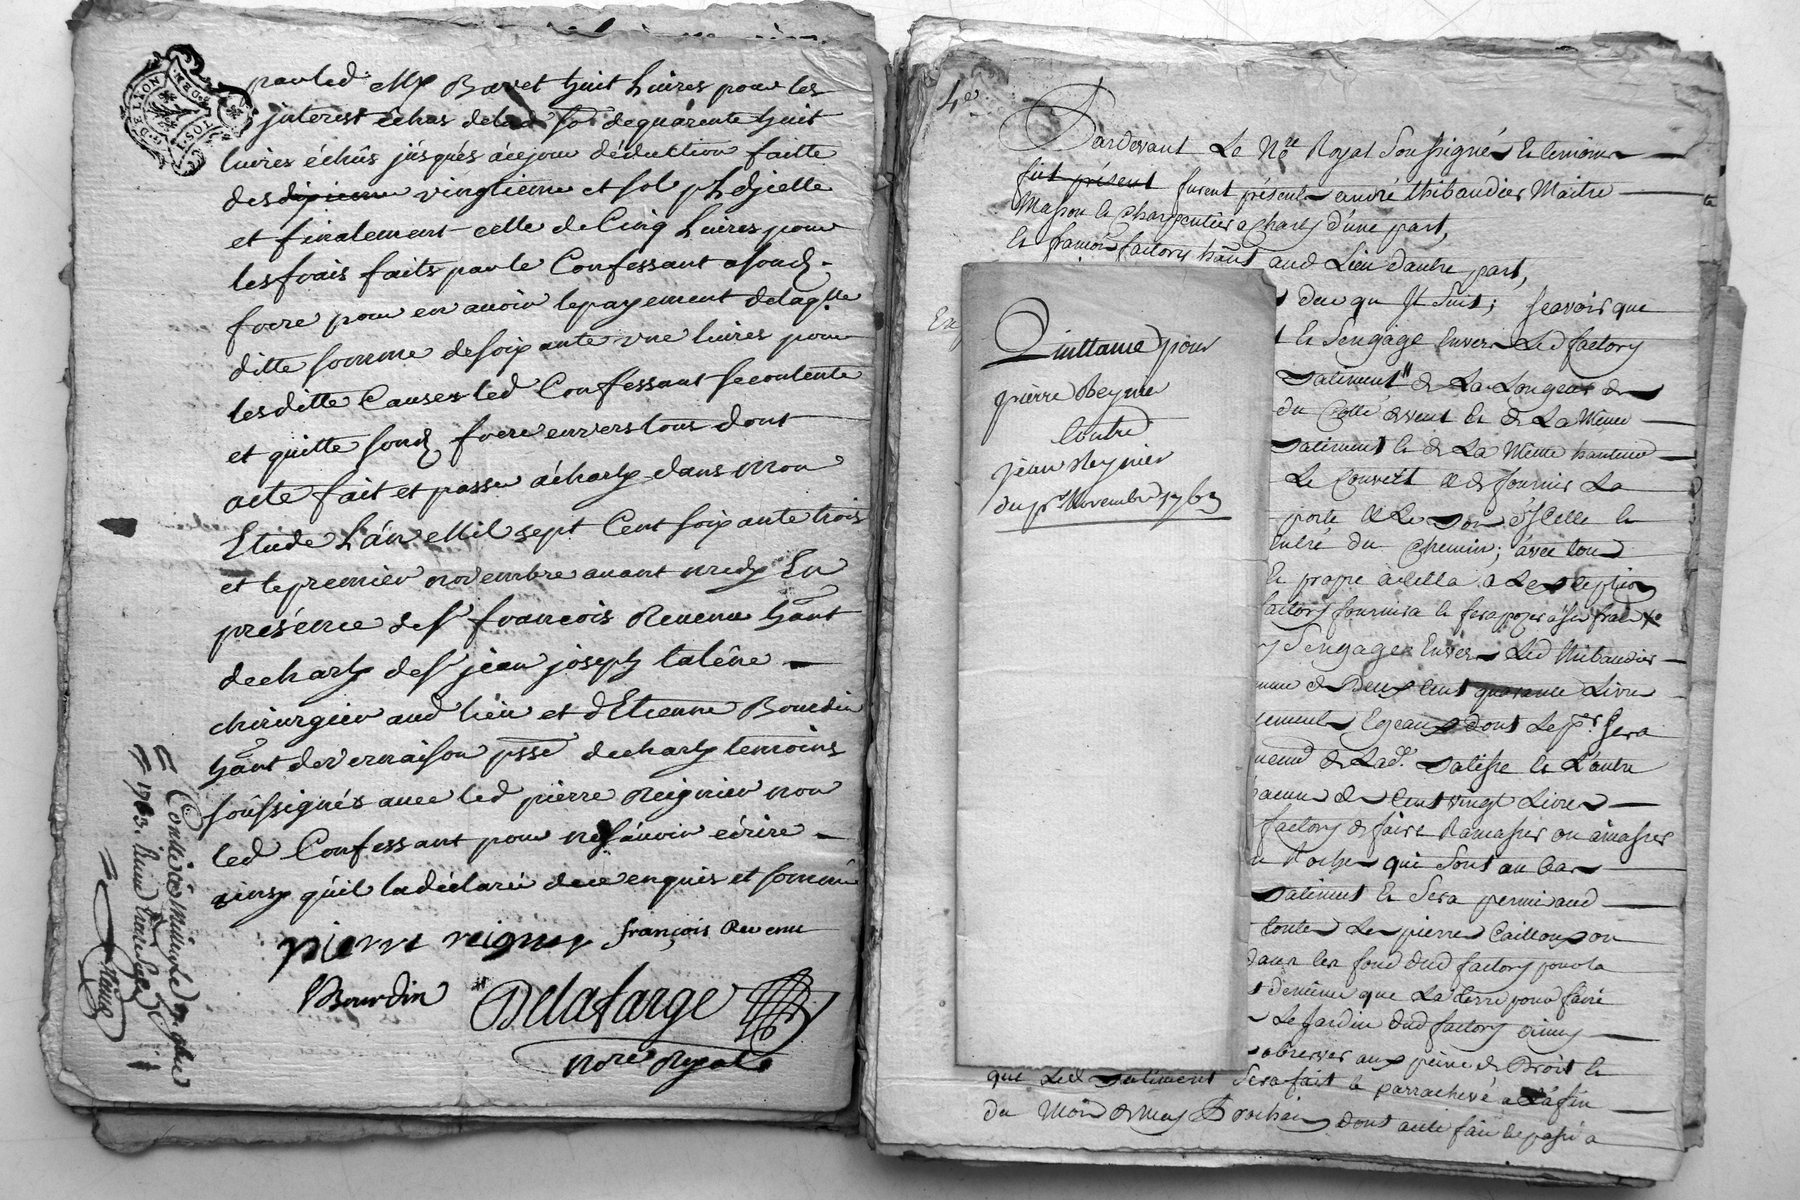 par led. Mr Barret huit Livres pour les
jnterest échus delad. so. de quarente huit
livres échûs jusqués àcejour déduction faitte
des dixieme vingtieme et sol pr L djcelle
et finalement celle de Cinq Livres pour
les frais faits par le Confessant asond.
frere pour en avoir le payement delaqlle
ditte somme desoixante une livres pour
lesditte Causes led Confessant secontente
et quitte sond. frere envers tous dont
acte fait et passé àcharly dans mon
Etude L'án Mil sept Cent soixante trois
et le premier novembre avant midy En
présence de sr françois Revenu hânt
decharly de sr jean joseph talêne
chirurgien aud lieu et d'Etienne Bourdin
hânt devernaison psse decharly temoins
soûssignés avec led pierre Reignier non
led Confessant pour nesçavoir écrire
ainsy qu'il la déclaré dece enquis et sommé
pierre reignier françois Revenu
Bourdin Delafarge
nore Royal
G. DE LYON
1763. Reçu treize sols
4e
Pardevant Le Nore Royal Soussignés Et temoins
fut présent furent présents andré thibaudier Maitre
Masson Et Charpentier a Charly d'une part,
Et françois factory hânt aud Lieu d'autre part,
due qu Jl Suit; scavoir que
Et Sengage Envers Led factory
Batiment de La Longeur de
du Cotté devent Et de La Même
Batiment Et de La Même hauteur
Le Couvert & de fournir La
porte
Entré du Chemin; avec tous
Et propre àcella a Lexception
factory fournira Et fera pozer àses frais
Sengage Envers Led thibaudier
de Deux Cent quarente Livre
Egeaux dont Le pr Sera
de Lad. Batisse Et L'autre
de Cent vingt Livres
factory de faire Ramasser ou amasser
Roches qui Sont au bas
Batiment Et Sera permi aud
toutes Les pierres Cailloux ou
dans Les fond dud factory pour la
demême que La terre pour faire
Le Jardin dud factory
observer aux peine de Droit Et
que Led Batiment Sera fait Et parrachevé a La fin
du Mois de May Prochain dont acte fait Et passé a
Quittance pour
pierre Reynier
Contre
jean Reynier
du pr Novembre 1763